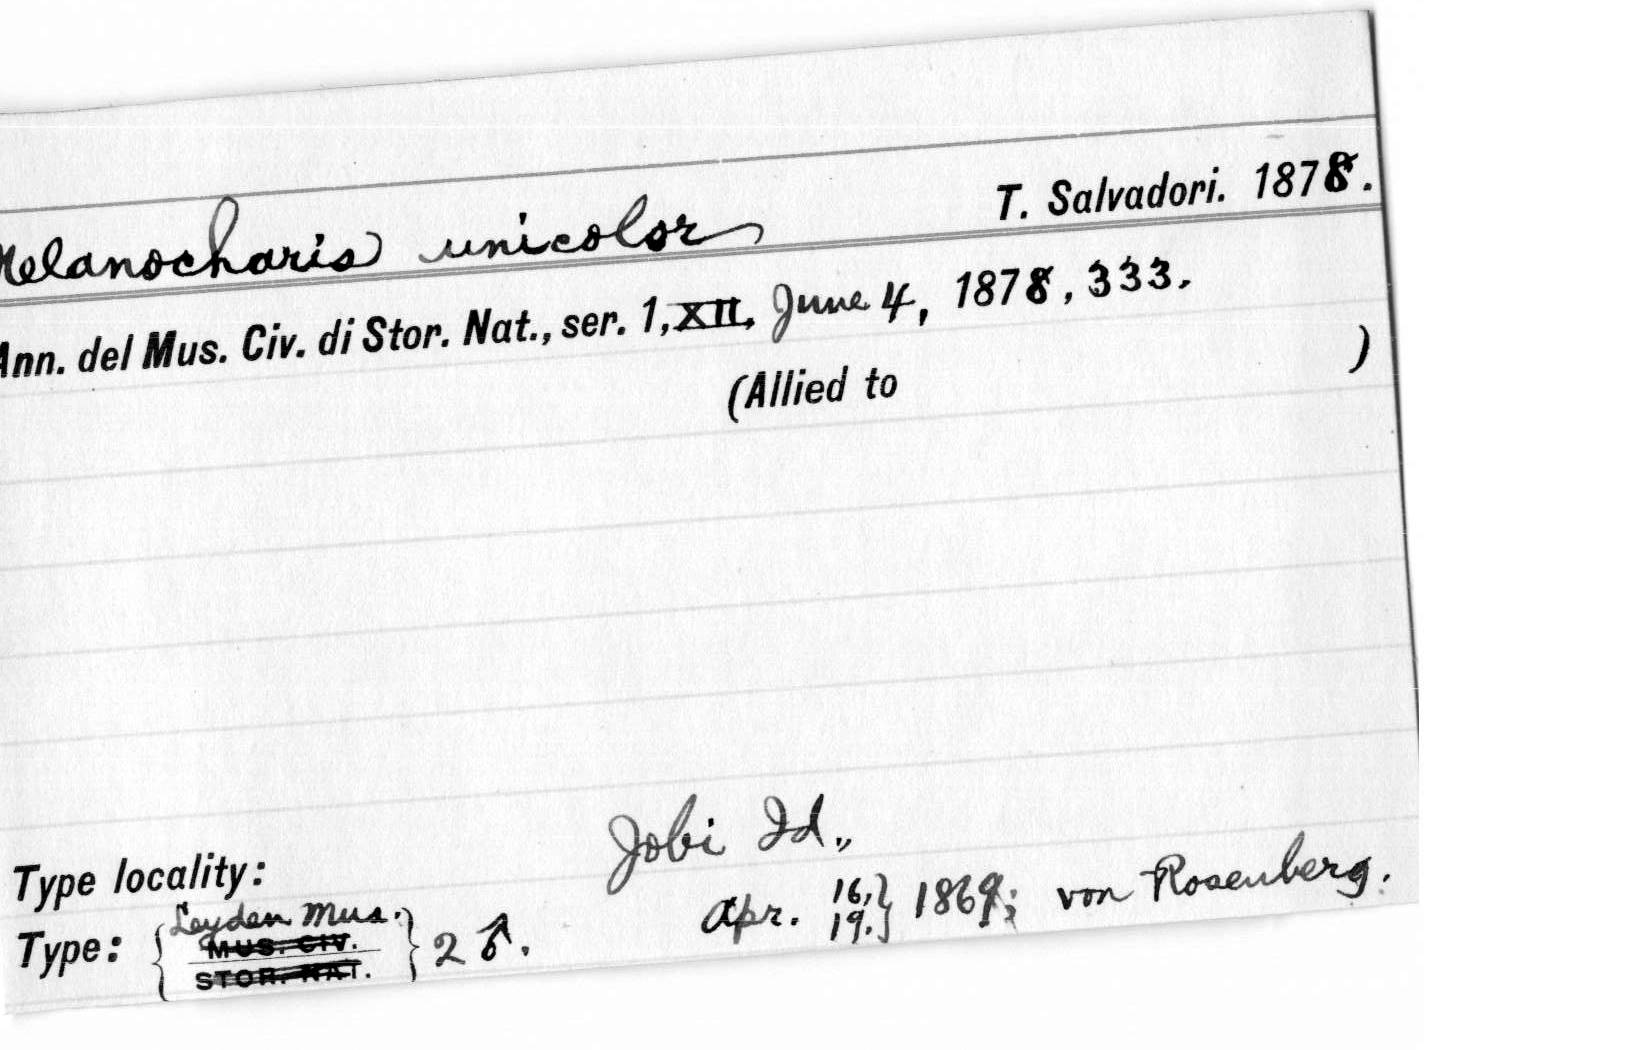 T. Salvadori. 1878.
Melanocharis unicolor
Ann. del Mus. Civ. di Stor. Nat., ser. 1, XII, June 4, 1878, 333.
(Allied to )
Type locality: Jobi Id.,
Apr. 16, 19. } 1869; von Rosenberg.
Type: { Leyden Mus. MUS. CIV. STOR. NAT. } 2 ♂.